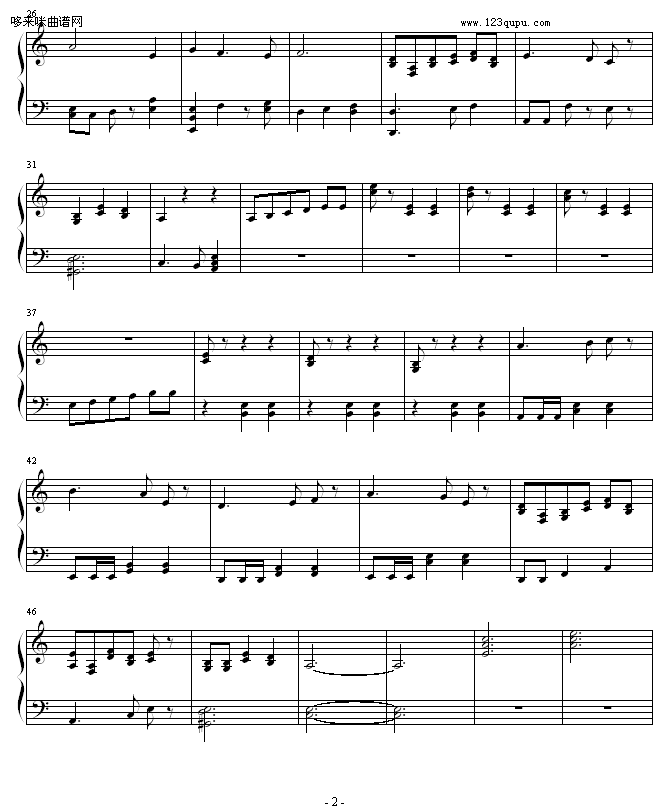 哆来咪曲谱网
www.123qupu.com
26
31
37
42
46
- 2 -